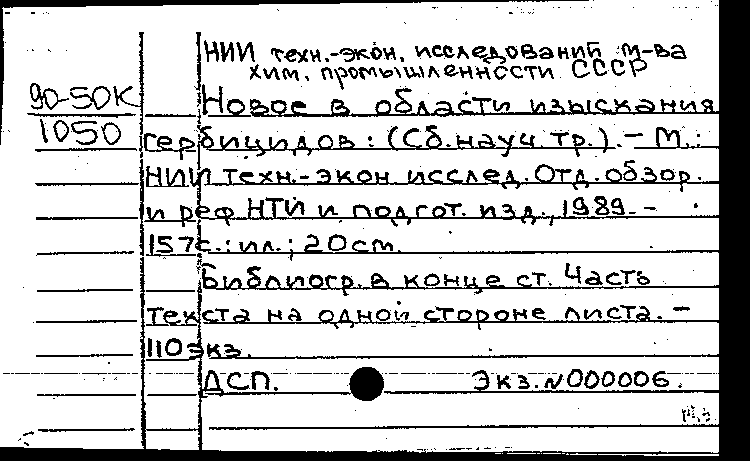 НИИ техн.-экон. исследований м-ва
хим. промышленности СССР
90-50К
1050
Новое в области изыскания
гербицидов: (Сб.науч.тр.).- М.:
НИИ техн.-экон исслед. Отд. обзор.
и реф НТИ и подгот. изд., 1989.-
157с.: ил.; 20см.
Библиогр. в конце ст. Часть
текста на одной стороне листа.-
110экз.
ДСП. Экз. №000006.